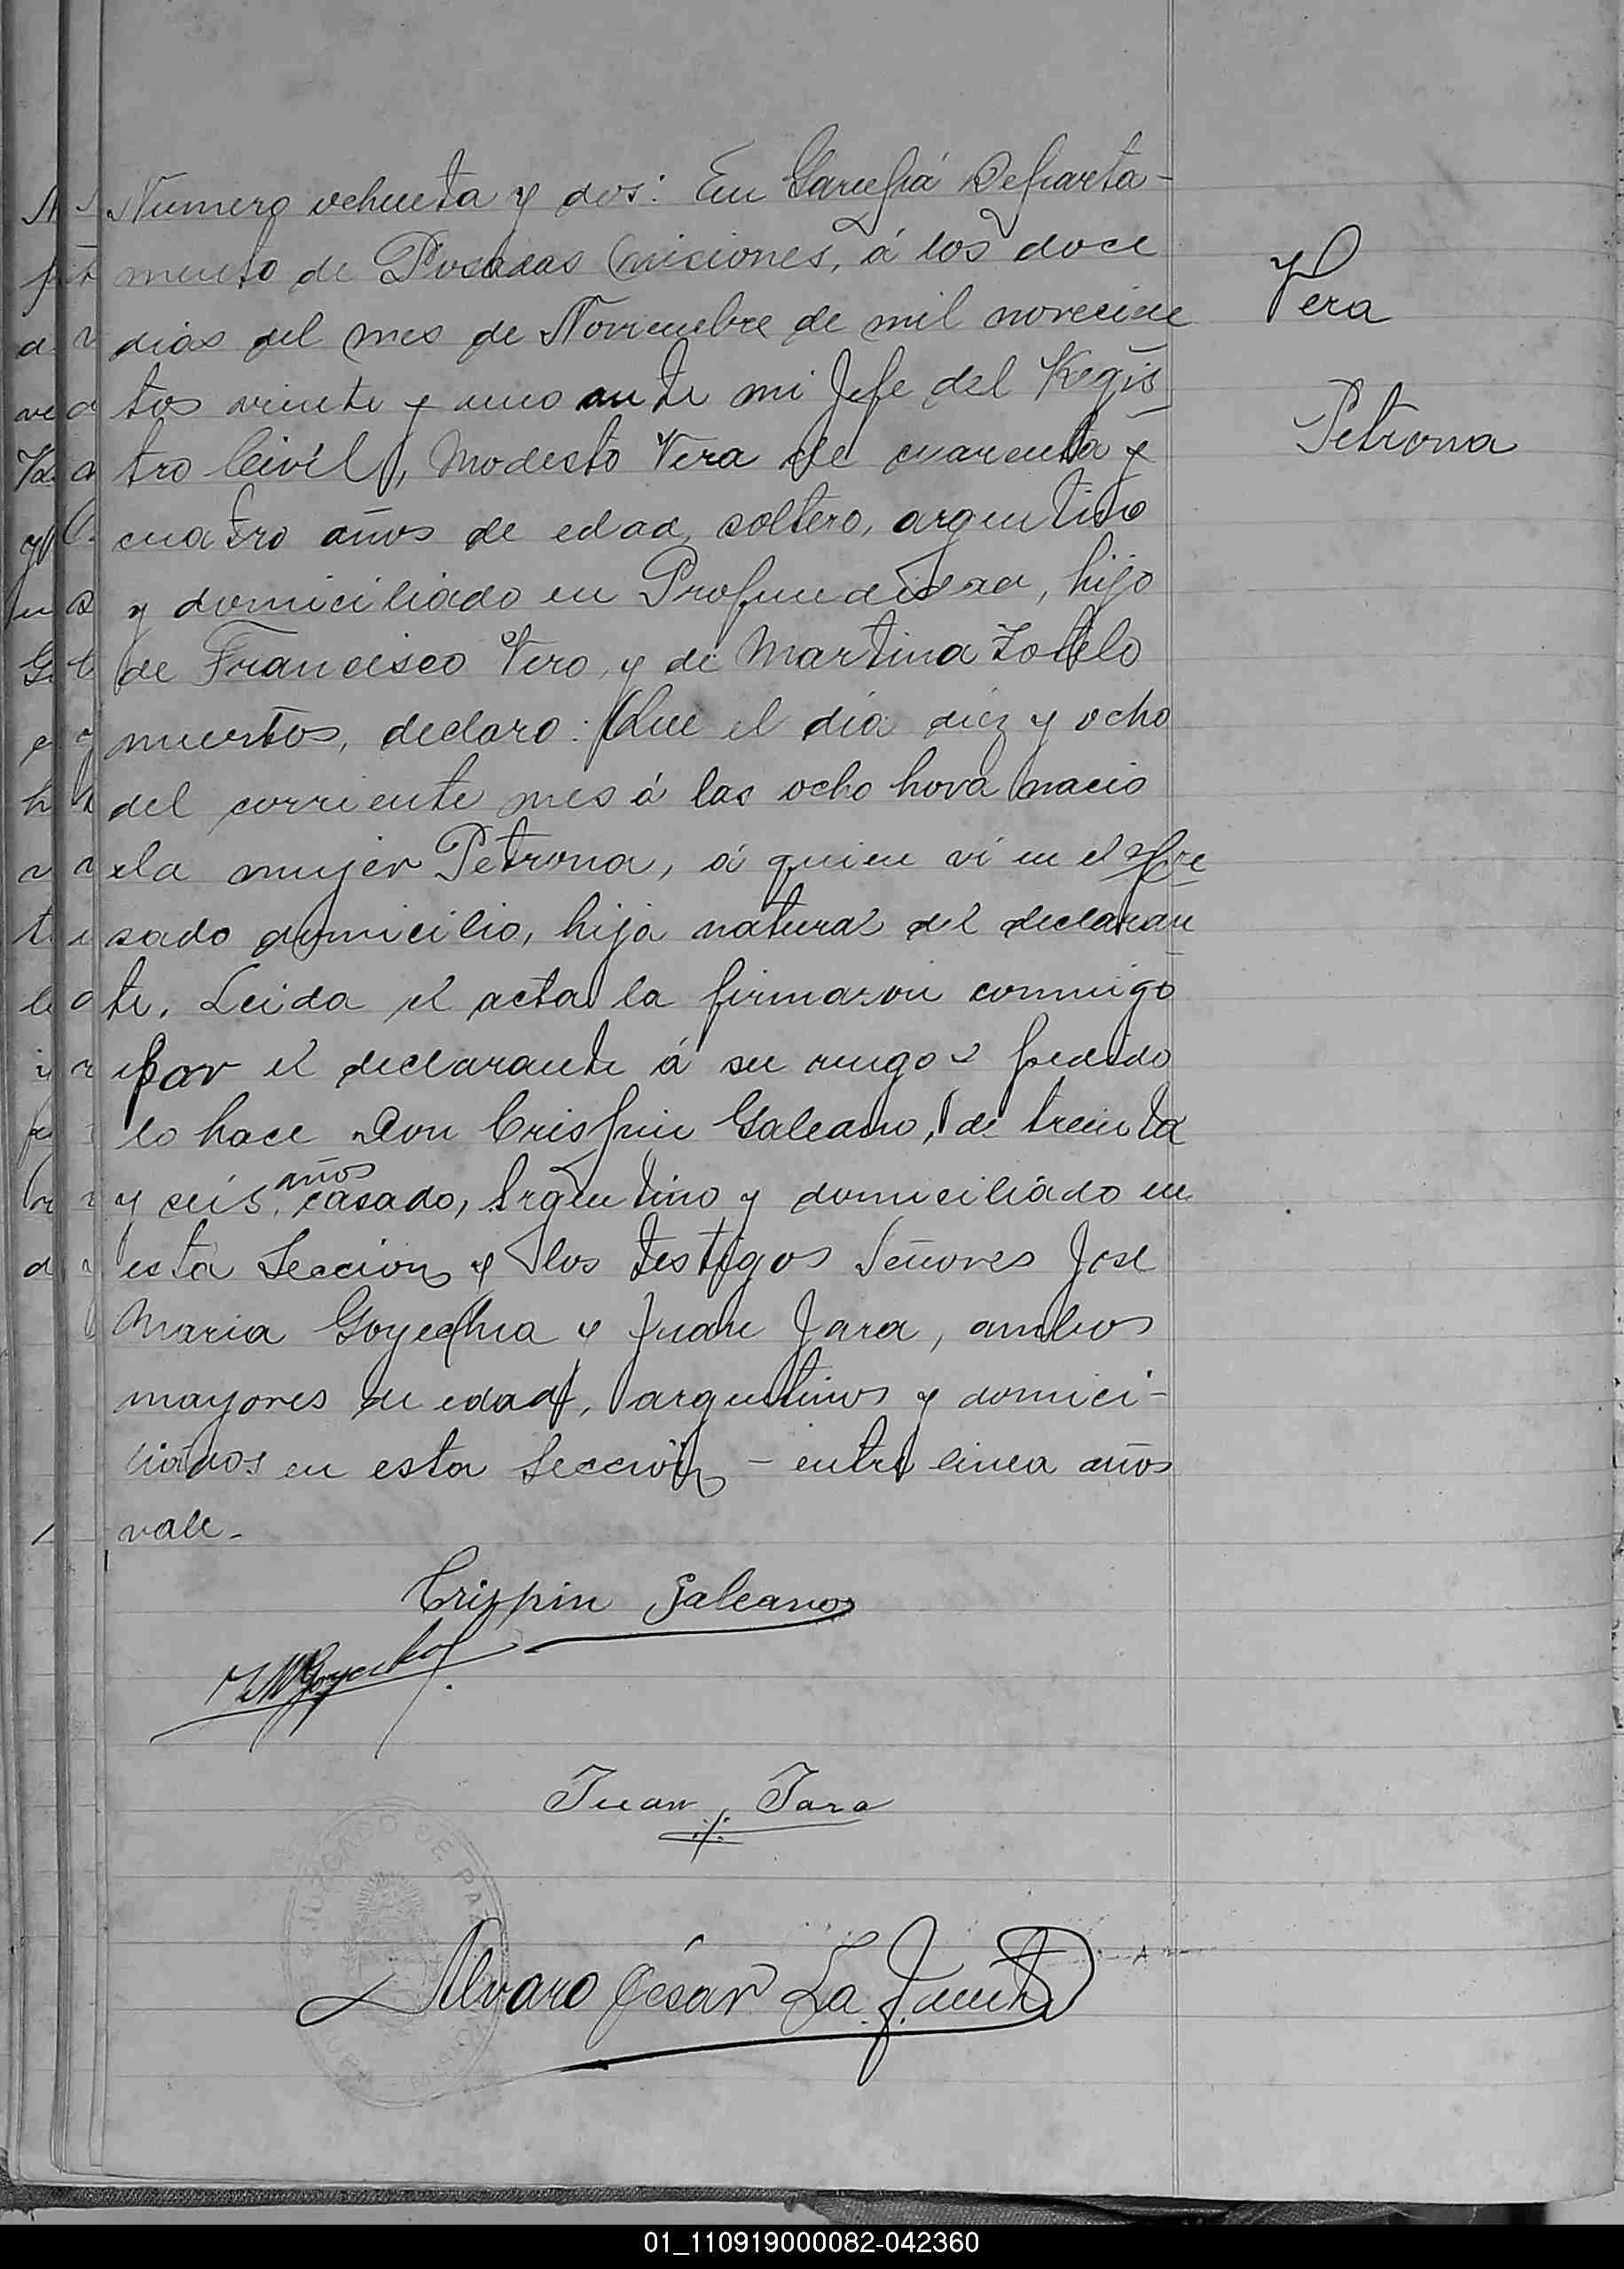 Numero ochenta y dos: En Garupá Departa-
mento de Posadas Misiones, á los doce
dias del mes de Noviembre de mil novecien
tos veinte y uno ante mi Jefe del Regis
tro Civil, Modesto Vera de cuarenta y
cuatro años de edad, soltero, argentino
y domiciliado en Profundidad, hijo
de Francisco Vero, y de Martina Zotelo
muertos, declaro: Que el dia diez y ocho
del corriente mes á las ocho hora nacio
la mujer Petrona, á quien vi en el espre
sado domicilio, hija natural del declaran
te. Leida el acta la firmaron conmigo
por el declarante á su ruego y pedido
lo hace Don Crispin Galeano, de treinta
y seis, años casado, Argentino y domiciliado en
esta Seccion y los testigos Señores Jose
Maria Goyechea y Juan Jara, ambos
mayores de edad, argentinos y domici-
liados en esta Sección - entre linea años
vale-
Vera
Petrona
Crispin Galeano
J M Goyechea
Juan Jara
JUZGADO DE PAZ
Alvaro César La Fuente
01_110919000082-042360